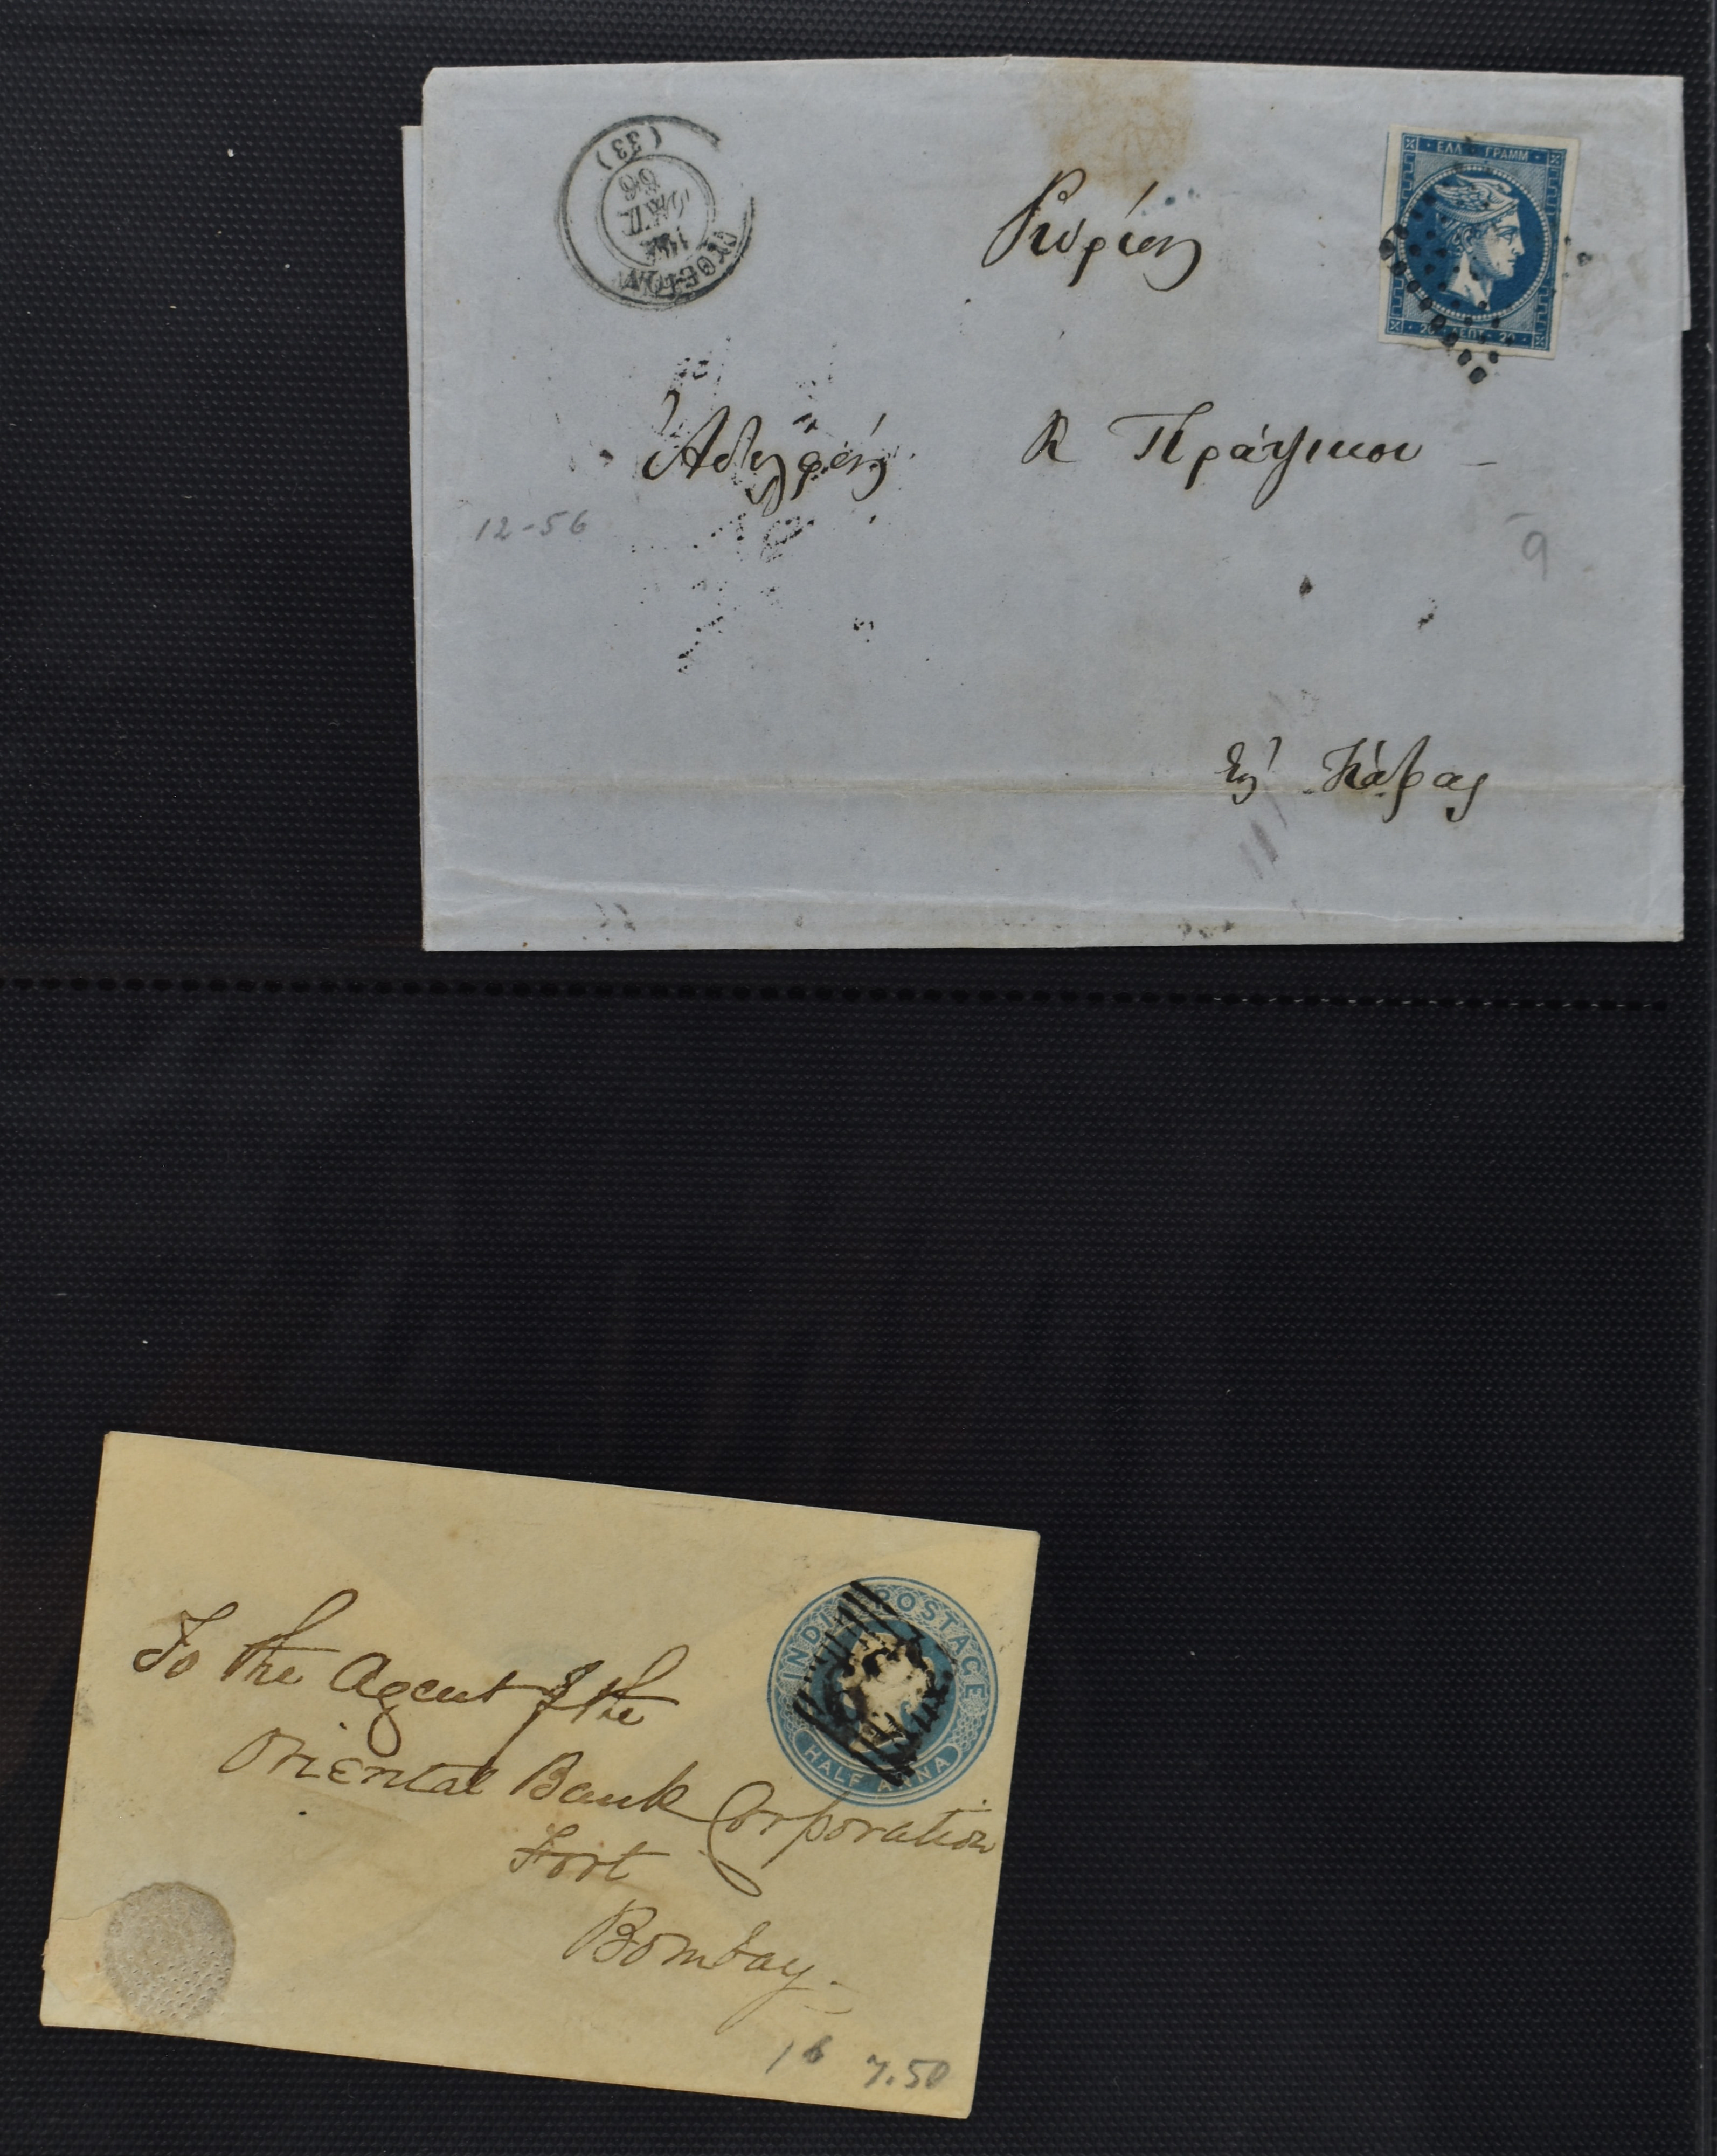 (33)
ΕΛΛ · ΓΡΑΜΜ
20 ΛΕΠΤ 20
Κυρίους
Ἀδελφούς
Κ Πράτσικου
12-56
9
Εἰς Πάτρας
INDIA POSTAGE
HALF ANNA
To the Agent of the
Oriental Bank Corporation
Fort
Bombay
16 7.50